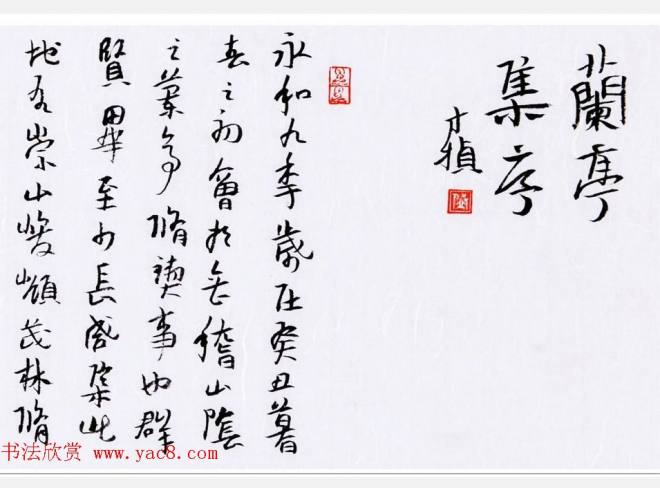 蘭亭
集序
才
永和九年歲在癸丑暮
春之初會於会稽山陰
之蘭亭脩禊事也群
賢畢至少長咸集此
地有崇山峻嶺茂林脩
书法欣赏 www.yac8.com